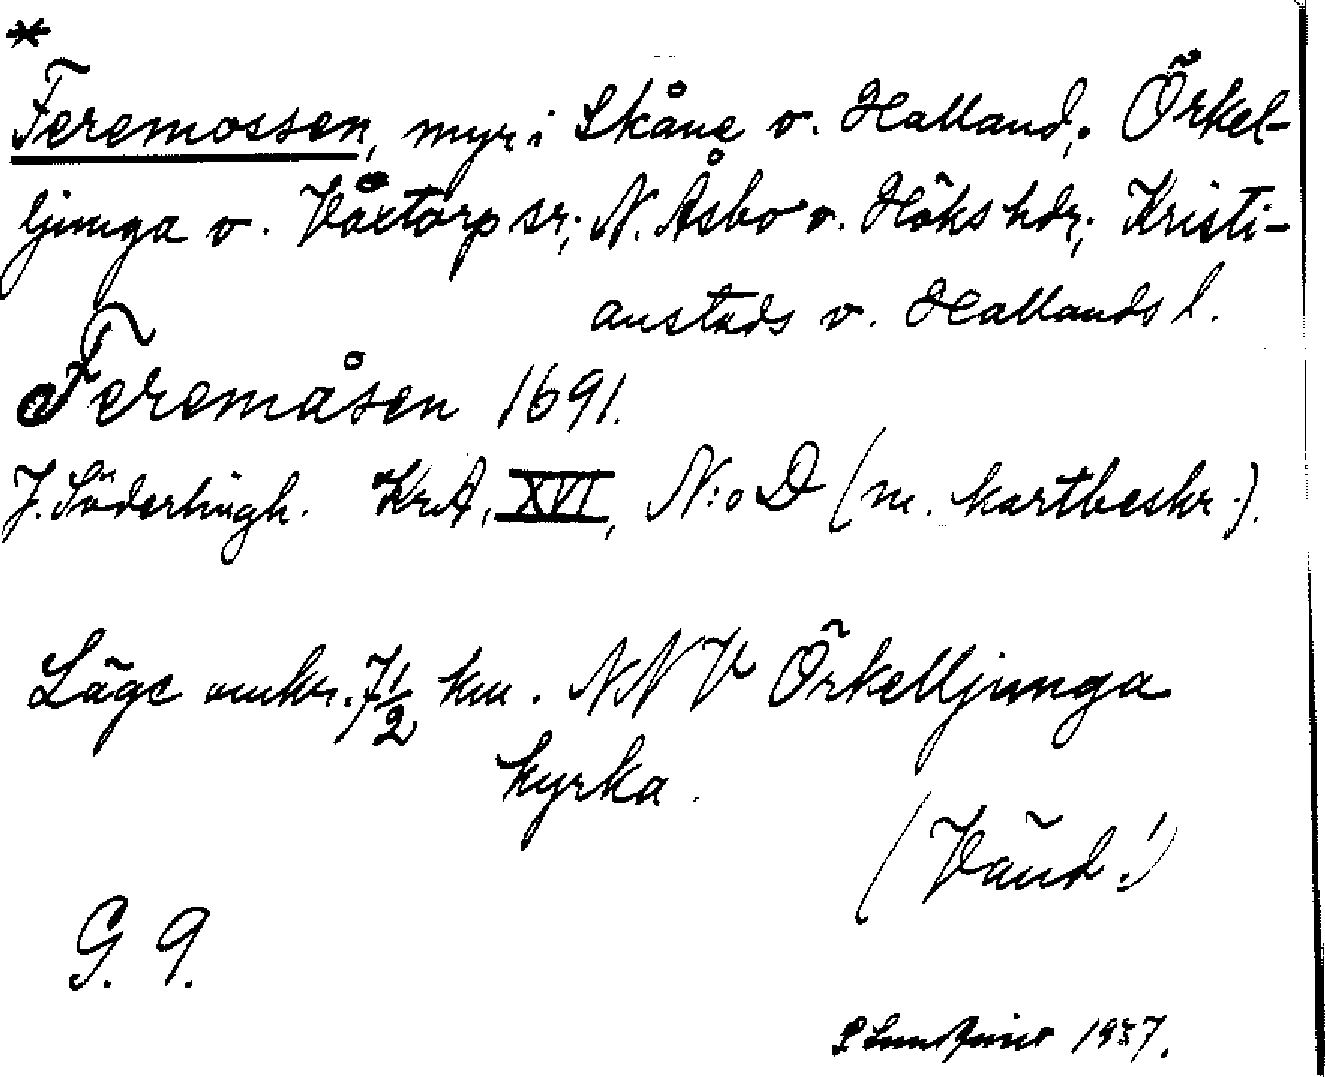 *
Feremossen, myr i Skåne o. Halland; Örkel-
ljunga o. Våxtorp sr; N. Åsbo o. Höks hdr; Kristi-
anstads o. Hallands l.
Feremåsen 1691.
J. Söderlingh. KrA, XVI, N:o D (m. kartbeskr.).
Läge omkr. 7 1/2 km. NNV Örkelljunga
kyrka.
(Vänd!)
G. 9.
1937.